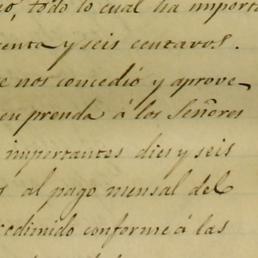 todo lo cual ha import
enta y seis centavos.
e nos concedió y aprove-
en prenda á los Señores
importantes dies y seis
al pago mensal del
edimido conforme á las